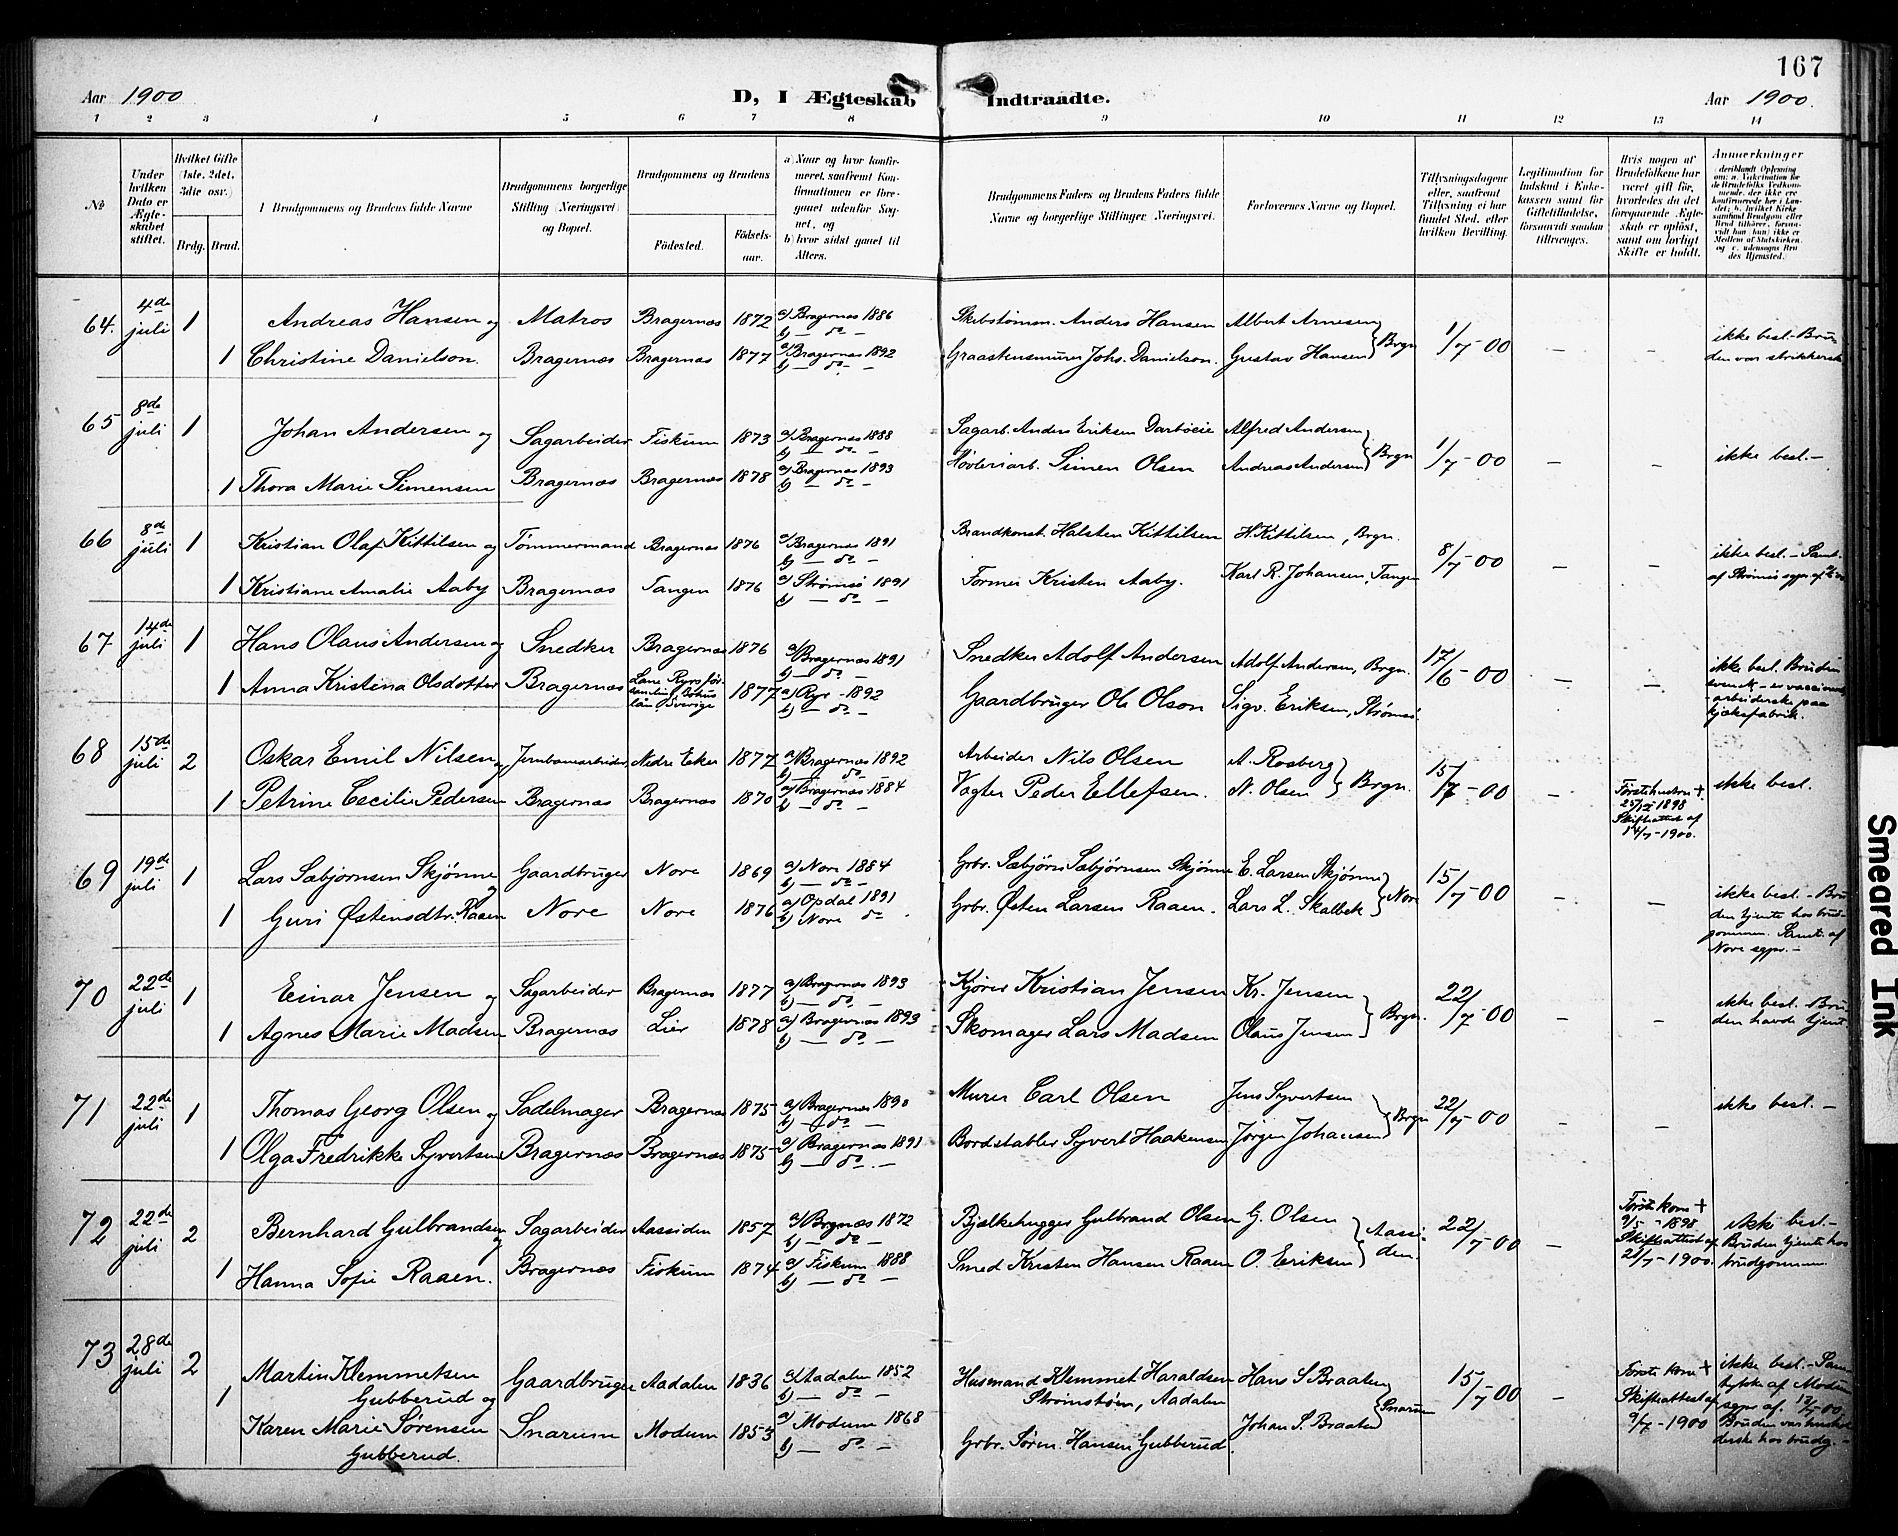 167
Aar 1900
D, I Ægteskab Indtraadte.
Aar 1900.
1 2 3 4 5 6 7 8 9 10 11 12 13 14
№
Under hvilken Dato er Ægteskabet stiftet.
Hvilket Gifte (1ste, 2det, 3die osv.)
Brdg. Brud.
Brudgommens og Brudens fulde Navne
Brudgommens borgerlige Stilling (Næringsvei) og Bopæl.
Brudgommens og Brudens
Fødested. Fødselsaar.
a) Naar og hvor konfirmeret, saafremt Konfirmationen er foregaaet udenfor Sognet, og
b) hvor sidst gaaet til Alters.
Brudgommens Faders og Brudens Faders fulde Navne og borgerlige Stillinger (Næringsvei).
Forlovernes Navne og Bopæl.
Tillysningsdagene eller, saafremt Tillysning ei har fundet Sted, efter hvilken Bevilling.
Legitimation for Indskud i Enkekassen samt for Giftetilladelse, forsaavidt saadan tiltrænges.
Hvis nogen af Brudefolkene har været gift før, hvorledes da det foregaaende Ægteskab er opløst, samt om lovligt Skifte er holdt.
Anmærkninger
64. 4de juli 1 Andreas Hansen og Matros Bragernæs 1872 a) Bragernæs 1886 b) — do — Skibstømm. Anders Hansen Albert Arnesen } Brgn 1/7-00 — — ikke best.- Bru-
1 Christine Danielson. Bragernæs Bragernæs 1877 a) Bragernæs 1892 b) — do — Graastensmurer Johs. Danielson. Gustav Hansen den var strikkerske
65 8de juli 1 Johan Andersen og Sagarbeider Fiskum 1873 a) Bragernæs 1888 b) — do — Sagarb. Anders Eriksen Alfred Andersen } Brgn 1/7-00 — — ikke best.-
1 Thora Marie Simensen Bragernæs Bragernæs 1878 a) Bragernæs 1893 b) — do — Høvleriarb. Simen Olsen Andreas Andersen
66 8de juli 1 Kristian Olaf Kittilsen og Tømmermand Bragernæs 1876 a) Bragernæs 1891 b) — do — Brandkonst. Halsten Kittilsen H. Kittilsen, Brgn. 8/7-00 — — ikke best.- Samt.
1 Kristiane Amalie Aaby Bragernæs Tangen 1876 a) Strømsø 1891 b) — do — Former Kristen Aaby. Karl R. Johansen, Tangen af Strømsø sgpr.
67 14de juli 1 Hans Olaus Andersen og Snedker Bragernæs 1876 a) Bragernæs 1891 b) — do — Snedker Adolf Andersen Adolf Andersen, Brgn. 17/6-00 — — ikke best. Bruden
1 Anna Kristina Olsdotter Bragernæs Lane Ryrs församling Bohus län Sverige 1877 a) Ryr - 1892 b) — do — Gaardbruger Ole Olson Sigv. Eriksen, Strømsø. svensk
68 15de juli 2 Oskar Emil Nilsen og Jernbanearbeider, Nedre Eker 1877 a) Bragernæs 1892 b) — do — Arbeider Nils Olsen A. Rosberg } Brgn. 15/7-00 — Første hustru + 1898 Skifteattest af 14/7-1900. ikke best.
1 Petrine Cecilie Pedersen Bragernæs Bragernæs 1870 a) Bragernæs 1884 b) — do — Vagter Peder Ellefsen. N. Olsen
69 19de juli 1 Lars Sæbjørnsen Skjønne og Gaardbruger Nore 1869 a) Nore 1884 b) — do — Grbr. Sæbjørn Sæbjørnsen Skjønne E. Larsen Skjønne } Nore 15/7-00 — — ikke best.- Bru-
1 Guri Østensdtr. Raaen Nore Nore 1876 a) Opdal 1891 b) Nore do Grbr. Østen Larsen Raaen. Lars L. Skalbek den tjente hos brudgommen. Samt. af Nore sgpr.-
70 22de juli 1 Einar Jensen og Sagarbeider Bragernæs 1877 a) Bragernæs 1893 b) — do — Kjører Kristian Jensen Kr. Jensen } Brgn. 22/7-00 — — ikke best.- Bru-
1 Agnes Marie Madsen Bragernæs Lier 1878 a) Bragernæs 1893 b) — do — Skomager Lars Madsen Olaus Jensen den havde tjent
71 22de juli 1 Thomas Georg Olsen og Sadelmager Bragernæs 1875 a) Bragernæs 1890 b) — do — Murer Carl Olsen Jens Syvertsen } Brgn 22/7-00 — — ikke best.-
1 Olga Fredrikke Syvertsen Bragernæs Bragernæs 1875 a) Bragernæs 1891 b) — do — Bordstabler Syvert Haakensen Jørgen Johansen
72 22de juli 2 Bernhard Gulbrandsen og Sagarbeider Aassiden 1857 a) Brgnæs 1872 b) — do — Bjælkehugger Gulbrand Olsen G. Olsen } Aassiden. 22/7-00 — Første kone + 9/5-1898 Skifteattest af 21/7-1900. ikke best.-
1 Hanna Sofie Raaen. Bragernæs Fiskum 1874 a) Fiskum 1888 b) — do — Smed Kristen Hansen Raaen O. Eriksen Bruden tjente hos brudgommen.
73 28de juli 2 Martin Klemmetsen Gubberud og Gaardbruger Aadalen 1836 a) Aadalen 1852 b) — do — Husmand Klemmet Haraldsen Strømstøen, Aadalen Hans S. Braaten } Snarum 15/7-00 — Første kone + Skifteattest af 9/7-1900 ikke best.- Samtykke af Modum sgpr. af 17/7-00,
1 Karen Marie Sørensen Gubberud. Snarum Modum 1853 a) Modum 1868 b) — do — Grbr. Søren Hansen Gubberud. Johan S. Braaten Bruden var hos brudg.-
Smeared Ink